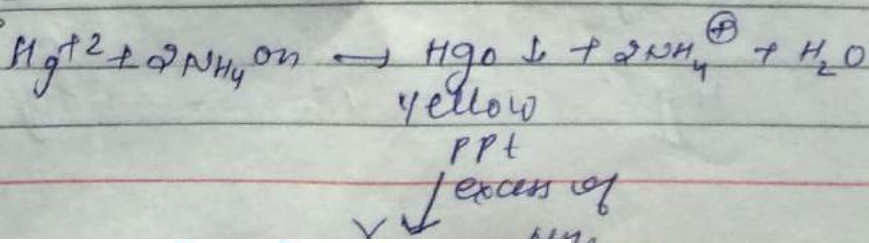 Hg+2 + 2NH4OH → HgO ↓ + 2NH4⊕ + H2O
yellow
PPt
excess of